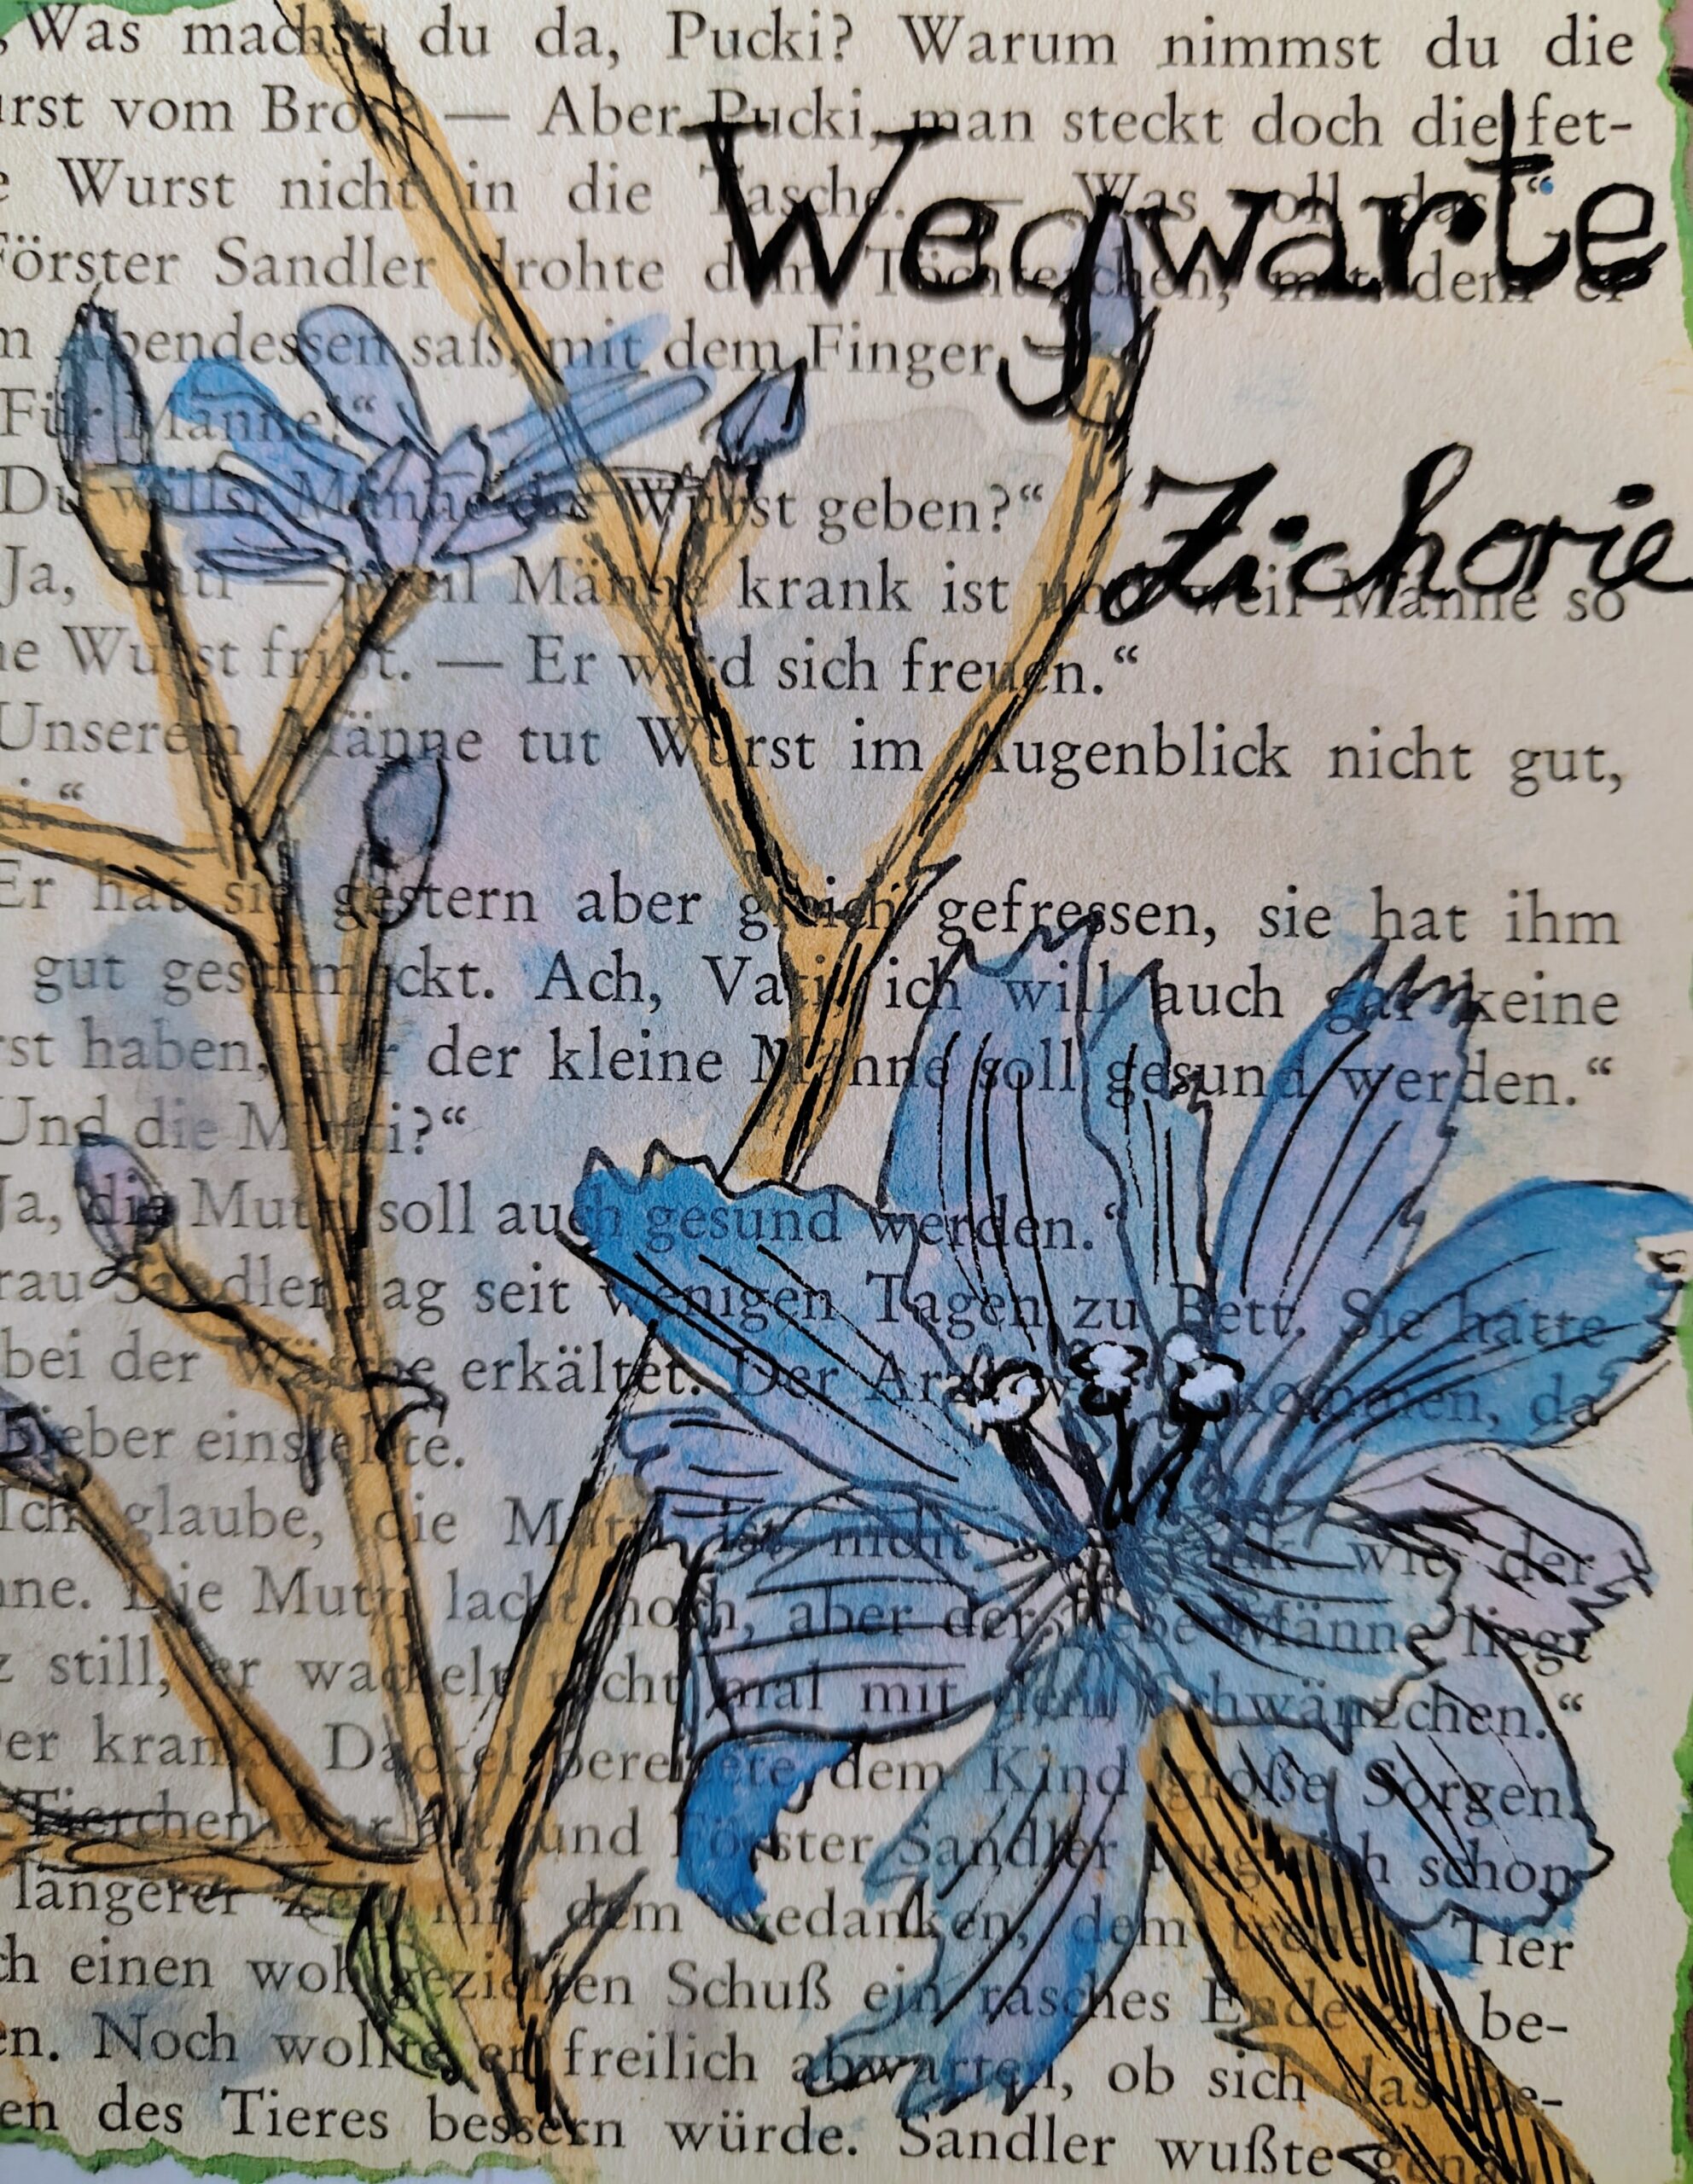 Was machst du da, Pucki? Warum nimmst du die
urst vom Brot? — Aber Pucki, man steckt doch die fet-
e Wurst nicht in die Tasche. — Was soll das?“
Wegwarte
Förster Sandler drohte dem Töchterchen, mit dem er
m Abendessen saß, mit dem Finger.
Für Männe!“
Du willst Männe die Wurst geben?“
Zichorie
Ja, Vati — weil Männe krank ist und weil Männe so
ne Wurst frißt. — Er wird sich freuen.“
Unserem Männe tut Wurst im Augenblick nicht gut,
ki.“
Er hat sie gestern aber gleich gefressen, sie hat ihm
gut geschmeckt. Ach, Vati, ich will auch gar keine
rst haben, nur der kleine Männe soll gesund werden.“
Und die Mutti?“
Ja, die Mutti soll auch gesund werden.“
rau Sandler lag seit wenigen Tagen zu Bett. Sie hatte
bei der Wäsche erkältet. Der Arzt kommen, da
Fieber einstellte.
Ich glaube, die Mutti ist nicht so krank wie der
nne. Die Mutti lacht noch, aber der liebe Männe liegt
z still, er wackelt nicht mal mit dem Schwänzchen.“
er kranke Dackel bereitete dem Kind große Sorgen.
Tierchen war alt, und Förster Sandler trug sich schon
längerer Zeit mit dem Gedanken, dem Tier
ch einen wohlgezielten Schuß ein rasches Ende zu be-
en. Noch wollte er freilich abwarten, ob sich das Be-
en des Tieres bessern würde. Sandler wußte genau